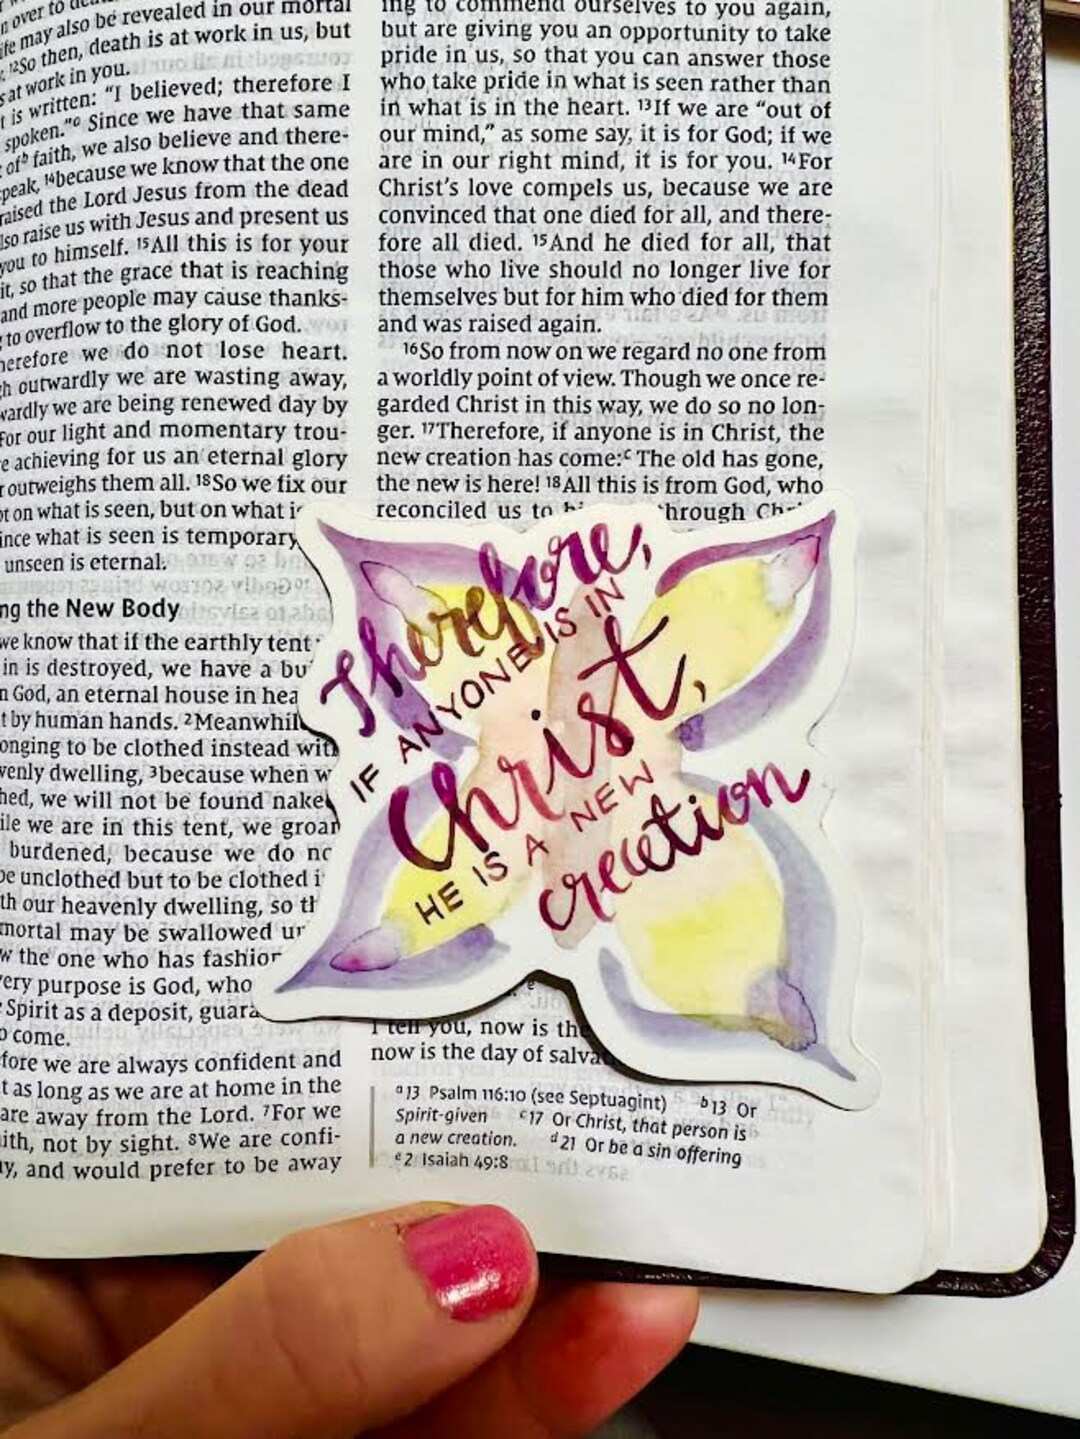 also be revealed in our mortal
may also be revealed in our mortal
¹²So then, death is at work in us, but
at work in you.
is written: "I believed; therefore I
spoken."ᵃ Since we have that same
ofᵇ faith, we also believe and there-
speak, ¹⁴because we know that the one
raised the Lord Jesus from the dead
raise us with Jesus and present us
you to himself. ¹⁵All this is for your
it, so that the grace that is reaching
and more people may cause thanks-
to overflow to the glory of God.
we do not lose heart.
outwardly we are wasting away,
we are being renewed day by
For our light and momentary trou-
achieving for us an eternal glory
outweighs them all. ¹⁸So we fix our
on what is seen, but on what
what is seen is temporary
unseen is eternal.
the New Body
we know that if the earthly tent
in is destroyed, we have a
God, an eternal house in
by human hands. ²
to be clothed instead
dwelling, ³because when
we will not be found
we are in this tent, we
burdened, because we do
be unclothed but to be clothed
our heavenly dwelling, so
mortal may be swallowed
the one who has
purpose is God, who
Spirit as a deposit,
come.
we are always confident and
as long as we are at home in the
are away from the Lord. ⁷For we
not by sight. ⁸We are confi-
and would prefer to be away
ing to commend ourselves to you again,
but are giving you an opportunity to take
pride in us, so that you can answer those
who take pride in what is seen rather than
in what is in the heart. ¹³If we are "out of
our mind," as some say, it is for God; if we
are in our right mind, it is for you. ¹⁴For
Christ's love compels us, because we are
convinced that one died for all, and there-
fore all died. ¹⁵And he died for all, that
those who live should no longer live for
themselves but for him who died for them
and was raised again.
¹⁶So from now on we regard no one from
a worldly point of view. Though we once re-
garded Christ in this way, we do so no lon-
ger. ¹⁷Therefore, if anyone is in Christ, the
new creation has come:ᶜ The old has gone,
the new is here! ¹⁸All this is from God, who
reconciled us to through
Therefore,
IF ANYONE IS IN
Christ,
HE IS A NEW
creation
I tell you, now is the
now is the day of
ᵃ13 Psalm 116:10 (see Septuagint) ᵇ13 Or
Spirit-given ᶜ17 Or Christ, that person is
a new creation. ᵈ21 Or be a sin offering
ᵉ2 Isaiah 49:8